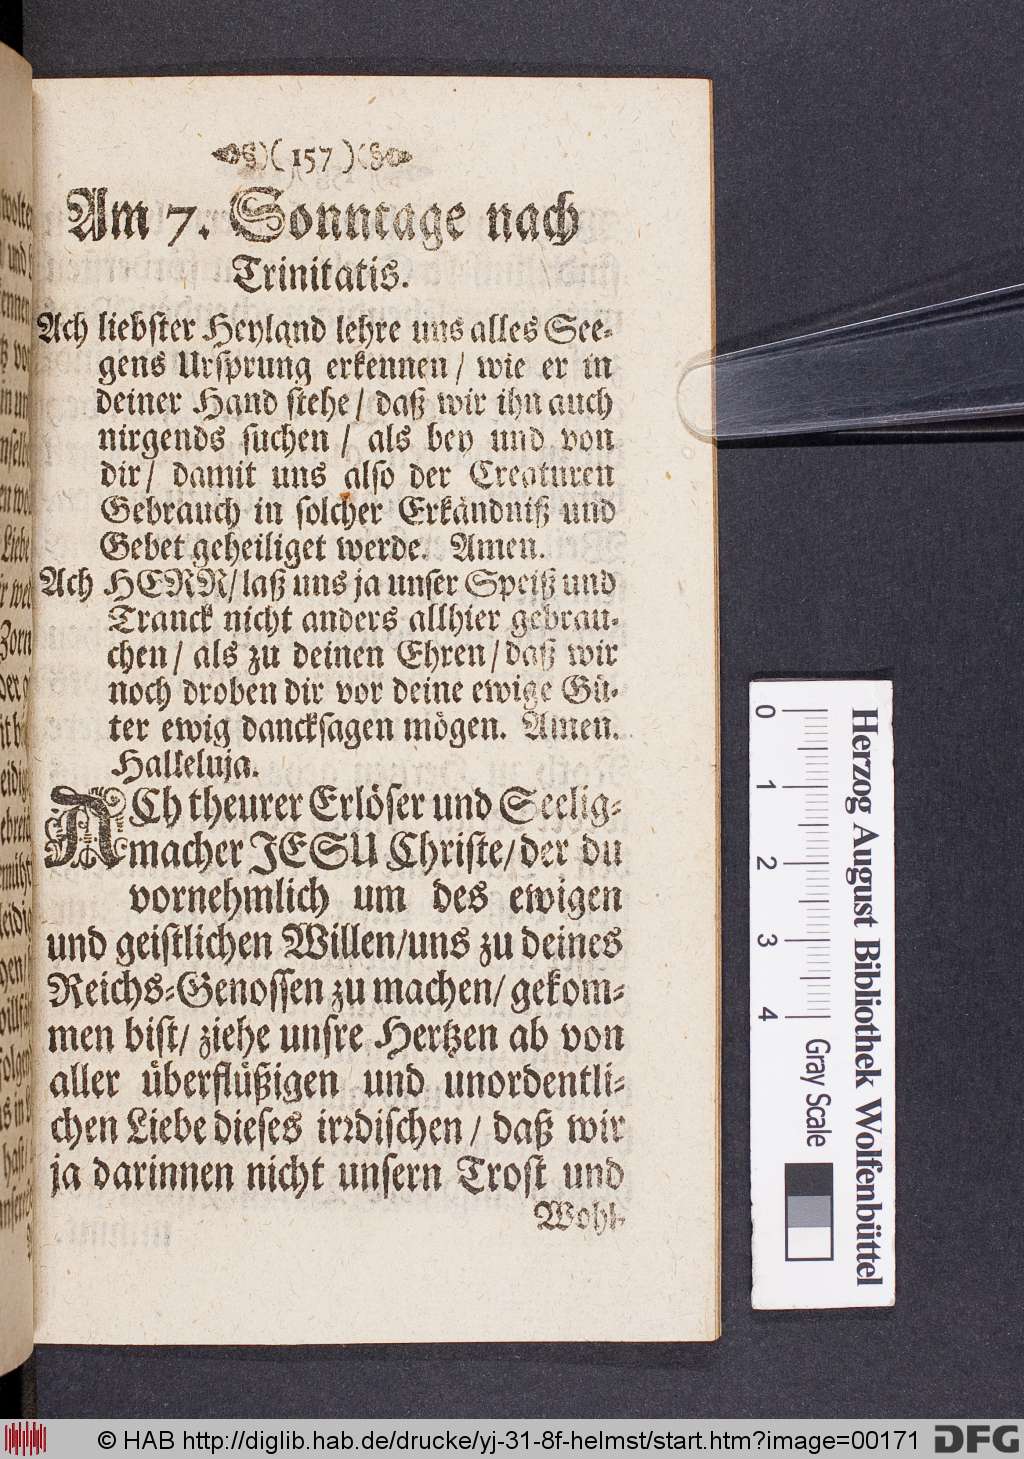 ( 157 )
Am 7. Sonntage nach
Trinitatis.
Ach liebster Heyland lehre uns alles See-
gens Ursprung erkennen / wie er in
deiner Hand stehe / daß wir ihn auch
nirgends suchen / als bey und von
dir / damit uns also der Creaturen
Gebrauch in solcher Erkändniß und
Gebet geheiliget werde. Amen.
Ach HERR / laß uns ja unser Speiß und
Tranck nicht anders allhier gebrau-
chen / als zu deinen Ehren / daß wir
noch droben dir vor deine ewige Gü-
ter ewig dancksagen mögen. Amen.
Halleluja.
ACh theurer Erlöser und Seelig-
macher JESU Christe / der du
vornehmlich um des ewigen
und geistlichen Willen / uns zu deines
Reichs-Genossen zu machen / gekom-
men bist / ziehe unsre Hertzen ab von
aller überflüßigen und unordentli-
chen Liebe dieses irrdischen / daß wir
ja darinnen nicht unsern Trost und
Wohl-
0 1 2 3 4
Gray Scale
Herzog August Bibliothek Wolfenbüttel
© HAB http://diglib.hab.de/drucke/yj-31-8f-helmst/start.htm?image=00171
DFG